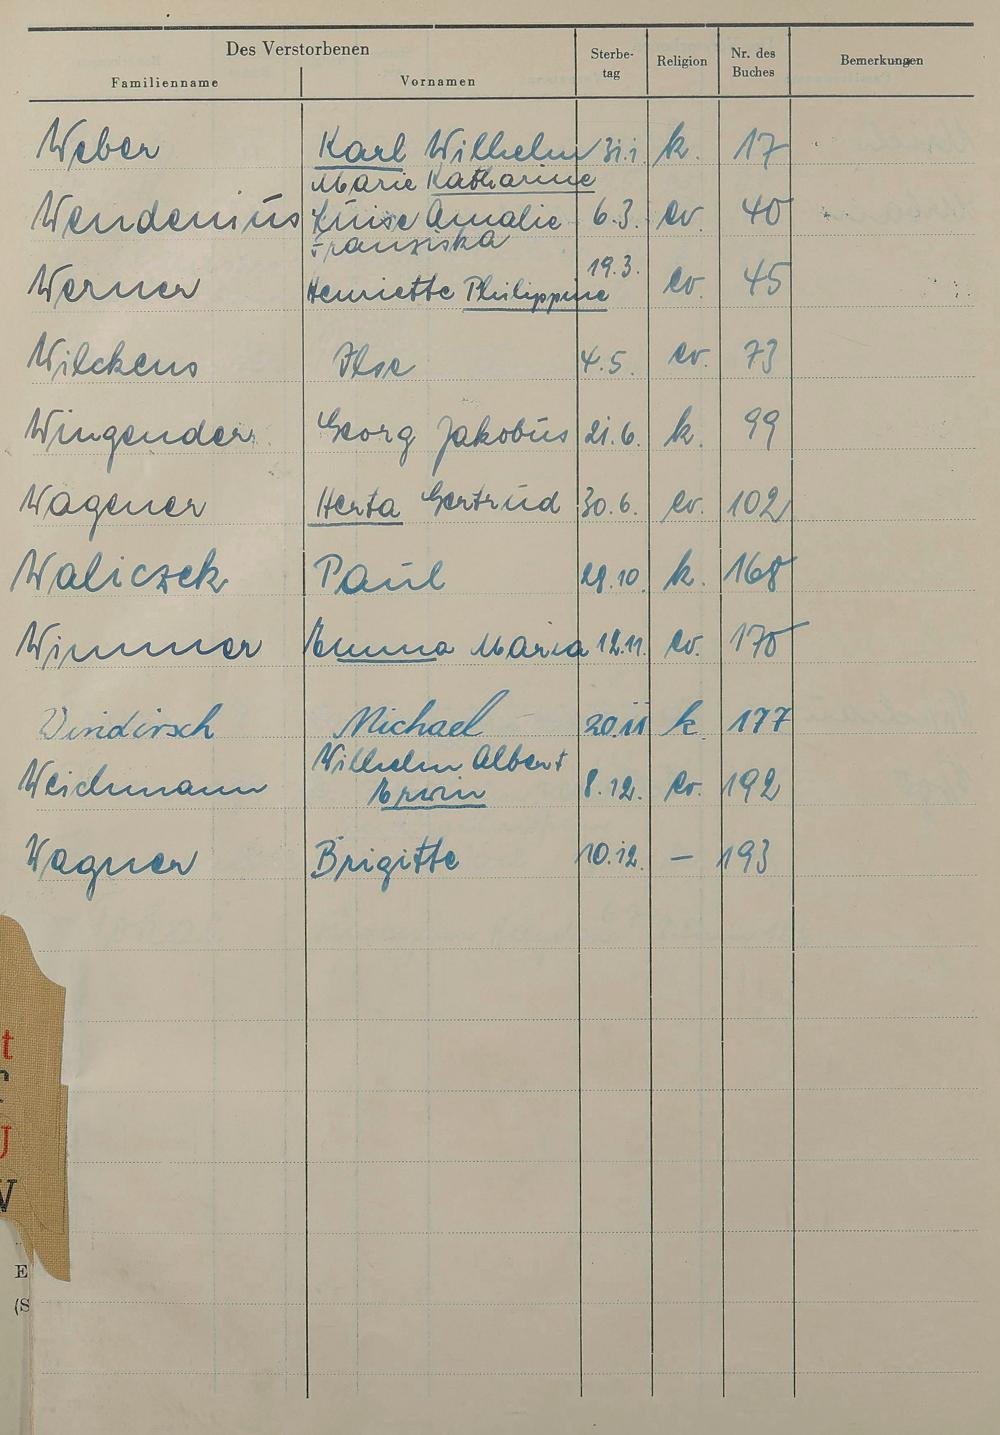 Des Verstorbenen Sterbe-tag Religion Nr. des Buches Bemerkungen
Familienname Vornamen
Weber Karl Wilhelm 31.1 k. 17
Marie Katharine
Wendenius Luise Amalie 6.3. ev. 40
Franziska
Werner Henriette Philippine 19.3. ev. 45
Wilckens Ilse 4.5. ev. 73
Wingender Georg Jakobus 21.6. k. 99
Wagener Herta Gertrud 30.6. ev. 102
Waliczek Paul 28.10. k. 168
Wimmer Emma Maria 12.11. ev. 170
Windirsch Michael 20.11 k. 177
Wilhelm Albert
Weichmann Erwin 8.12. ev. 192
Wagner Brigitte 10.12. – 193
t
J
W
E
(S